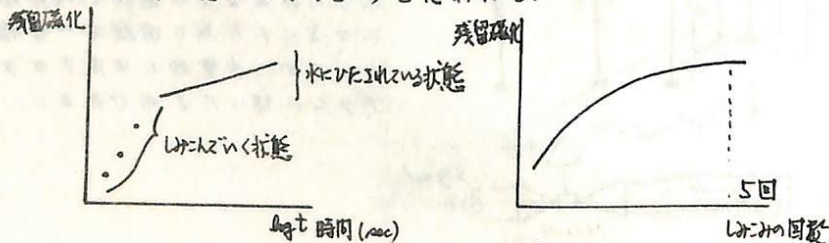 残留磁化
水にひたされている状態
しみこんでいく状態
log t 時間 (sec)
残留磁化
5回
しみこみの回数